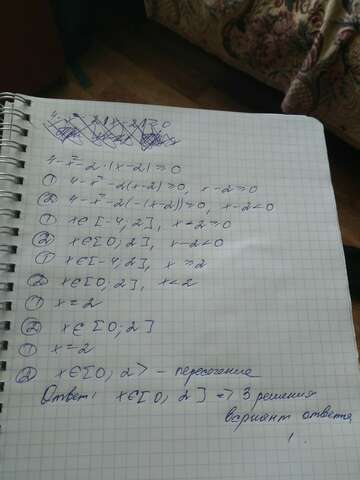 4-x²-2·(x-2)≥0
① 4-x²-2(x-2)≥0, x-2≥0
② 4-x²-2(-(x-2))≥0, x-2<0
① x∈[-4, 2], x-2≥0
② x∈[0, 2], x-2<0
① x∈[-4, 2], x≥2
② x∈[0, 2], x<2
① x=2
② x∈[0; 2]
① x=2
② x∈[0, 2> - пересечение
Ответ: x∈[0, 2] => 3 решения
вариант ответа
1.